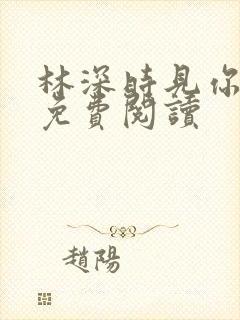 林深時見你
免費閱讀
趙陽